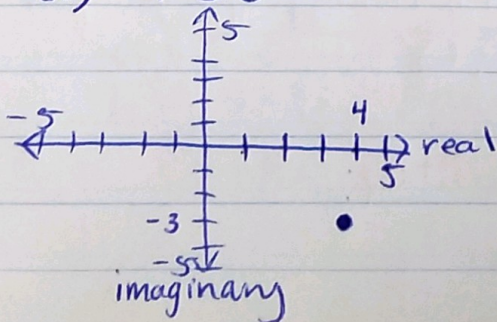 5
-5
4
real
5
-3
-5
imaginary